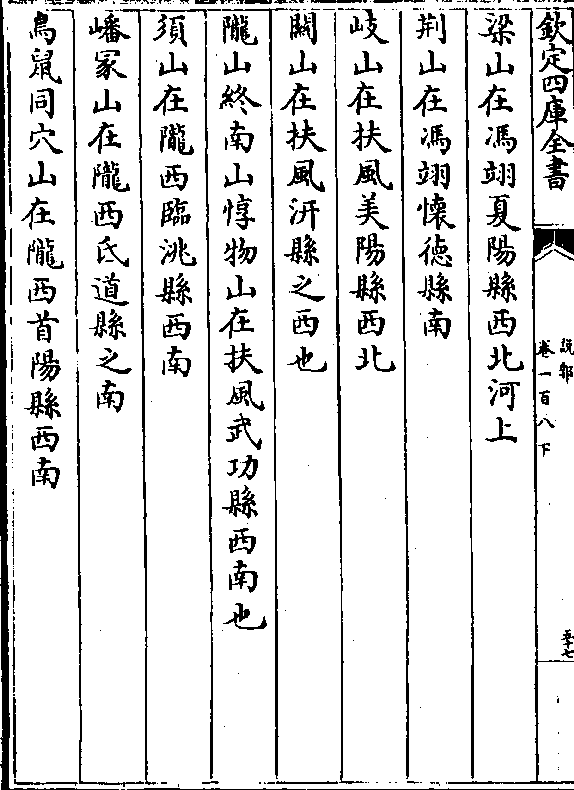 欽定四庫全書
說郛
卷一百八下
五十七
梁山在馮翊夏陽縣西北河上
荆山在馮翊懷德縣南
岐山在扶風美陽縣西北
關山在扶風汧縣之西也
隴山終南山惇物山在扶風武功縣西南也
須山在隴西臨洮縣西南
嶓冢山在隴西氐道縣之南
鳥鼠同穴山在隴西首陽縣西南